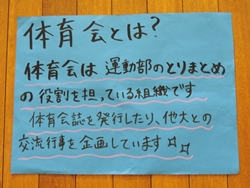 体育会とは?
体育会は運動部のとりまとめ
の役割を担っている組織です
体育会誌を発行したり、他大との
交流行事を企画しています